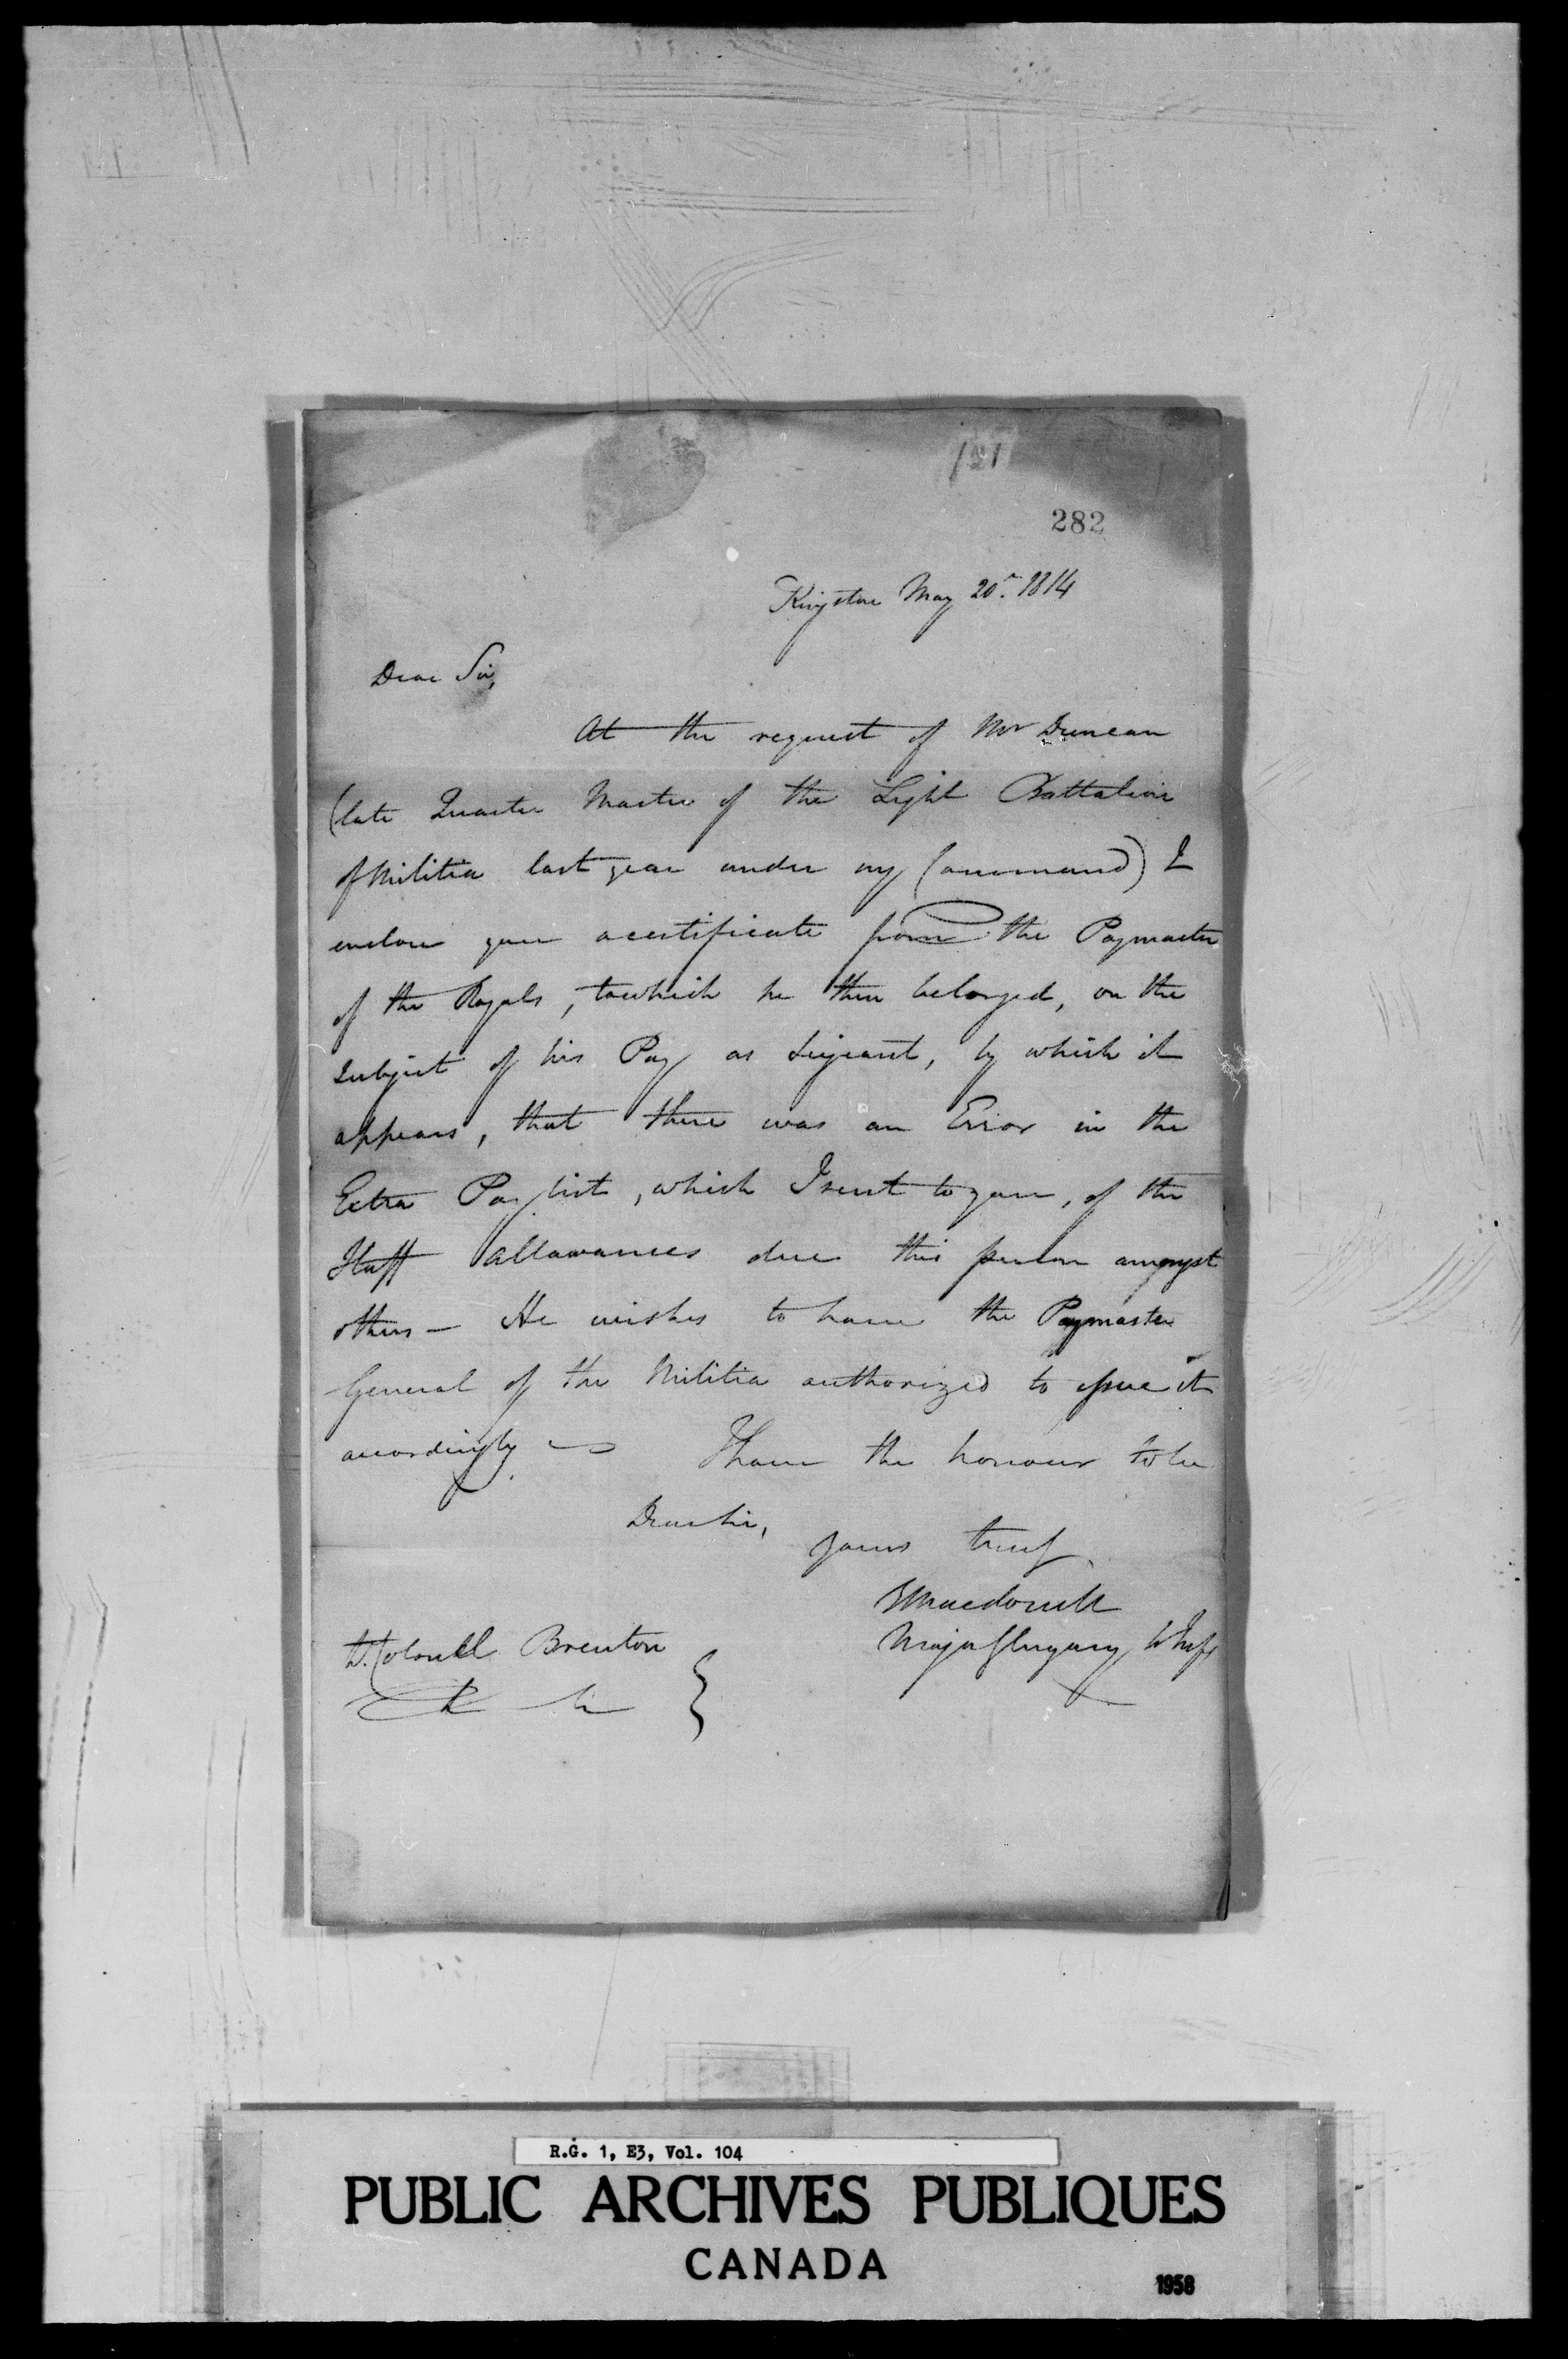 121
282
Kingston May 20th. 1814
Dear Sir,
At the request of Mr Duncan
(late Quarter Master of the Light Battalion
of Militia last year under my Command) I
enclose you a certificate from the Paymaster
of the Royals, to which he then belonged, on the
subject of his Pay as Serjeant, by which it
appears, that there was an Error in the
Extra Pay list, which I sent to you, of the
Staff allowances due this person amongst
others — He wishes to have the Paymaster
General of the Militia authorized to issue it
accordingly — I have the honour to be
Dear Sir,
yours truly
G Macdonell
Major Glengary Lt Infy
Lt. Colonel Brenton
&c &c }
R.G. 1, E3, Vol. 104
PUBLIC ARCHIVES PUBLIQUES
CANADA
1958